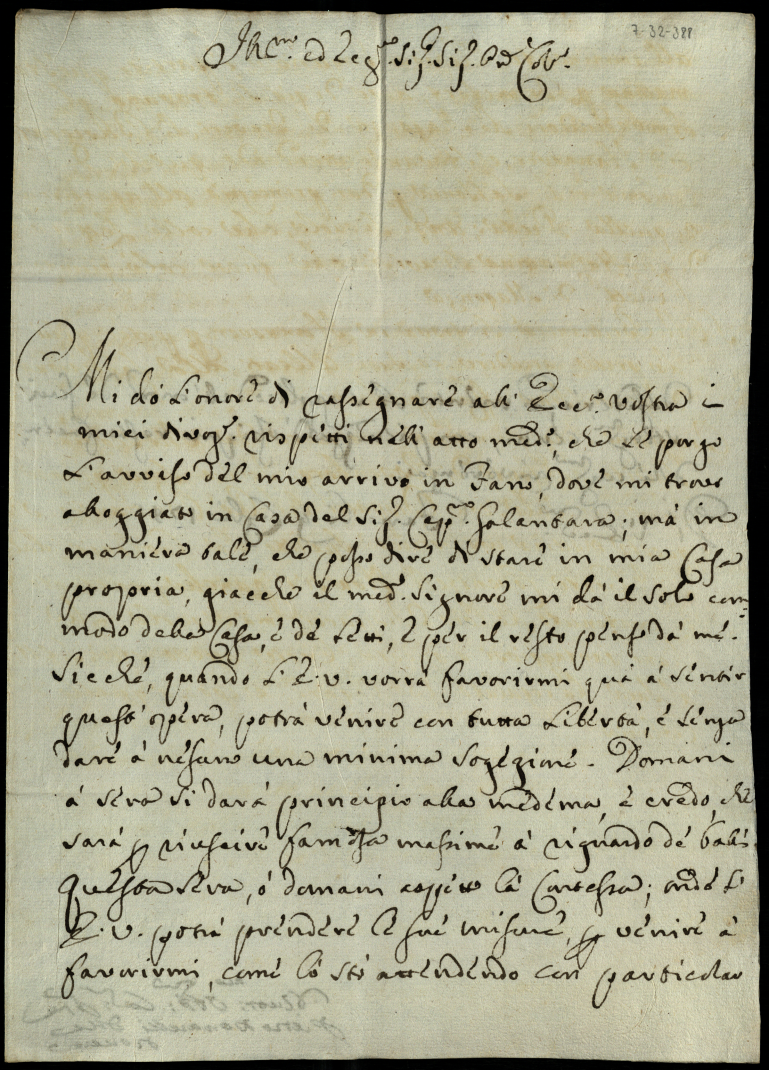 7-32-388
Ill.mo ed Ecc.mo Sig.r Sig.r P.ron Col.mo
Mi dò l'onore di rassegnare all' Ecc.a Vostra i
miei divoti rispetti nell' atto med.o, che le porgo
l'avviso del mio arrivo in Fano, dove mi trovo
alloggiato in Casa del Sig.r Galantara; mà in
maniera tale, che posso dire di stare in mia Casa
propria, giacche il med.o Signore mi dà il solo com-
modo della Casa, e de letti, e per il resto penso da me.
Sicche, quando l'E.V. vorrà favorirmi quà à sentir
quest' opera, potrà venire con tutta libertà, e senza
dare à nesuno una minima sogezione. Domani
à sera si darà principio alla medema, e credo, che
sarà p riuscire famosa massime à riguardo de balli.
Questa sera, ò domani aspetto la Contessa; onde l'
E.V. potrà prendere le sue misure, p venire à
favorirmi, come lo stò attendendo con particolar